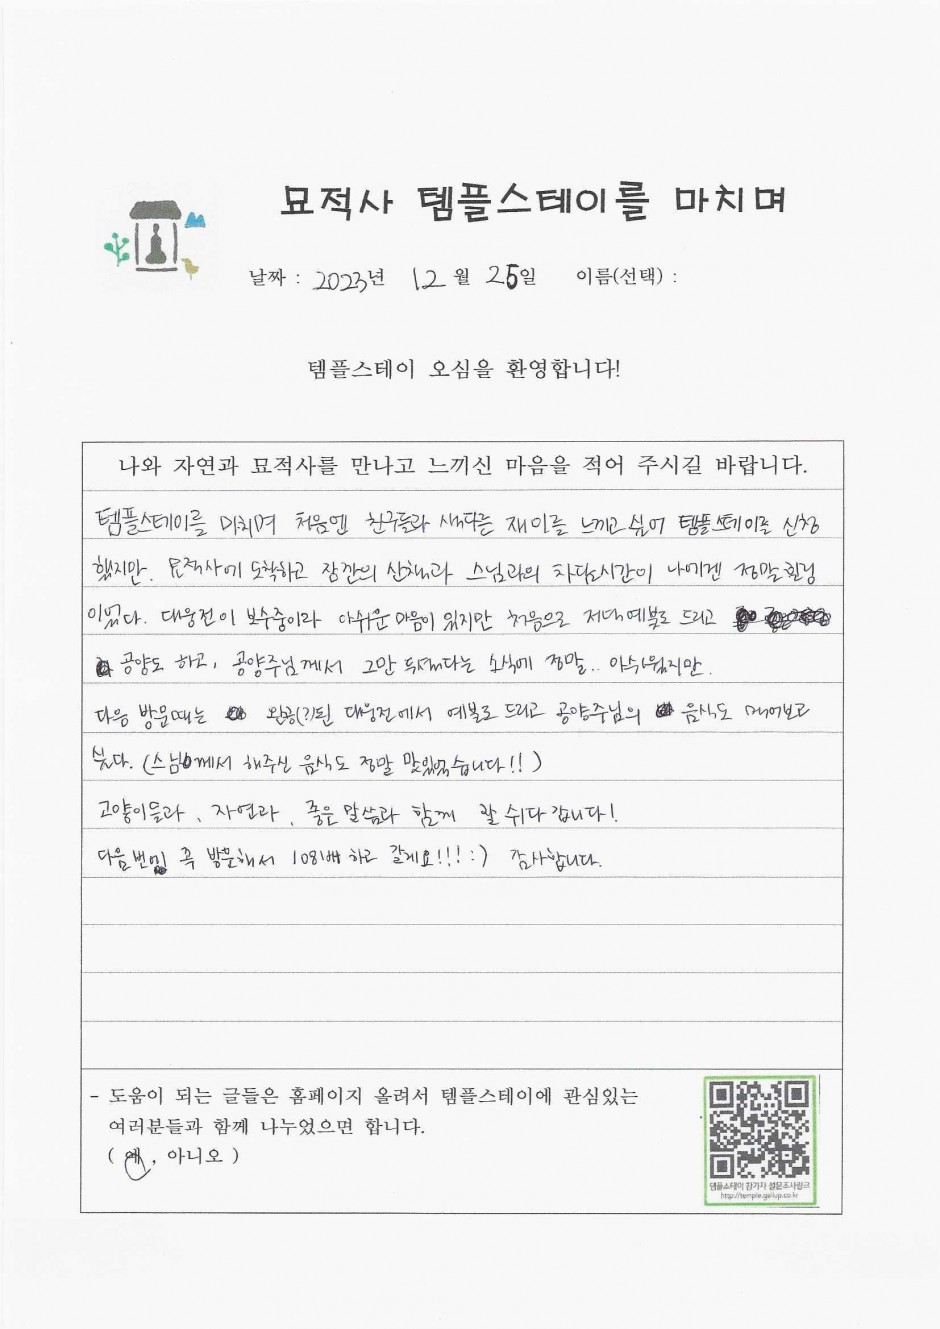 묘적사 템플스테이를 마치며
날짜 : 2023년 12월 25일 이름(선택) :
템플스테이 오심을 환영합니다!
나와 자연과 묘적사를 만나고 느끼신 마음을 적어 주시길 바랍니다.
템플스테이를 마치며 처음엔 친구들과 색다른 재미를 느끼고 싶어 템플스테이를 신청
했지만. 묘적사에 도착하고 잠깐의 산책과 스님과의 차담시간이 나에겐 정말 힐링
이었다. 대웅전이 보수중이라 아쉬운 마음이 있지만 처음으로 저녁예불로 드리고
공양도 하고, 공양주님께서 그만 두신다는 소식에 정말.. 아쉬웠지만.
다음 방문때는 완공(?)된 대웅전에서 예불로 드리고 공양주님의 음식도 먹어보고
싶다. (스님께서 해주신 음식도 정말 맛있었습니다!!)
고양이들과, 자연과, 좋은 말씀과 함께 잘 쉬다 갑니다!
다음번엔 꼭 방문해서 108배 하고 갈게요!!! :) 감사합니다.
- 도움이 되는 글들은 홈페이지 올려서 템플스테이에 관심있는
여러분들과 함께 나누었으면 합니다.
( 예 , 아니오 )
템플스테이 참가자 설문조사링크
http://temple.gallup.co.kr